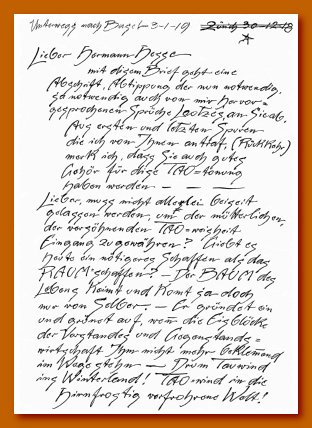 Unterwegs nach Basel 3-1-19 Zürich 30-12-18
Lieber Hermann Hesse
mit disem Brief geht eine
Abschrift, Abtippung der nun notwendig,
so notwendig auch von mir hervor=
gesprochenen Sprüche Laotses an Sie ab.
Aus ersten und letzten Spuren
die ich von Ihnen antraf, (Rückkehr)
merk ich, dass Sie auch gutes
Gehör für dise TAO=tönung
haben werden — — —
Lieber, muss nicht allerlei beiseit
gelassen werden, um der mütterlichen,
der versöhnenden TAO=weisheit
Eingang zu gewähren? Giebt es
heute ein nötigeres Schaffen als das
RAUM=schaffen? — Der BAUM des
Lebens Keimt und Komt ja doch
nur von Selber. — Er gründet ein
und grünet auf, wenn die Eisblöcke
der Verstandes und Gegenstands=
wirtschaft Ihm nicht mehr beklemend
im Wege stehn — Drum Tauwind
ins Winterland! TAO=wind in die
hirnfrostig verfrohrene Welt!